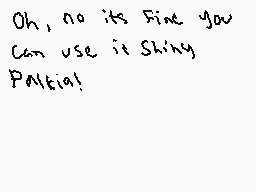 Oh, no its Fine you
can use it Shiny
Palkia!